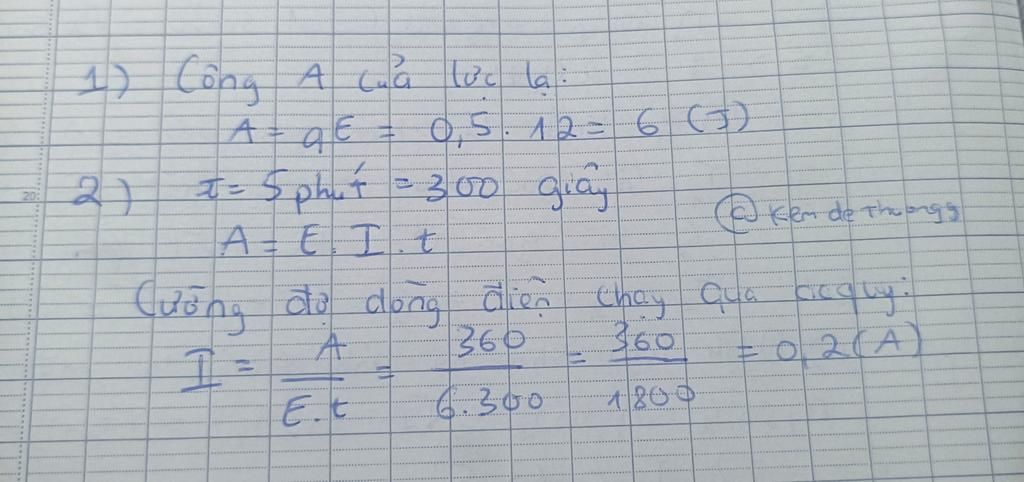 1) Công A của lực lạ:
A = qE = 0,5 . 12 = 6 (J)
2) t = 5 phút = 300 giây
© Kem dethuongg
A = E . I . t
Cường độ dòng điện chạy qua acquy:
I = A / E.t = 360 / 6.300 = 360 / 1800 = 0,2 (A)
20